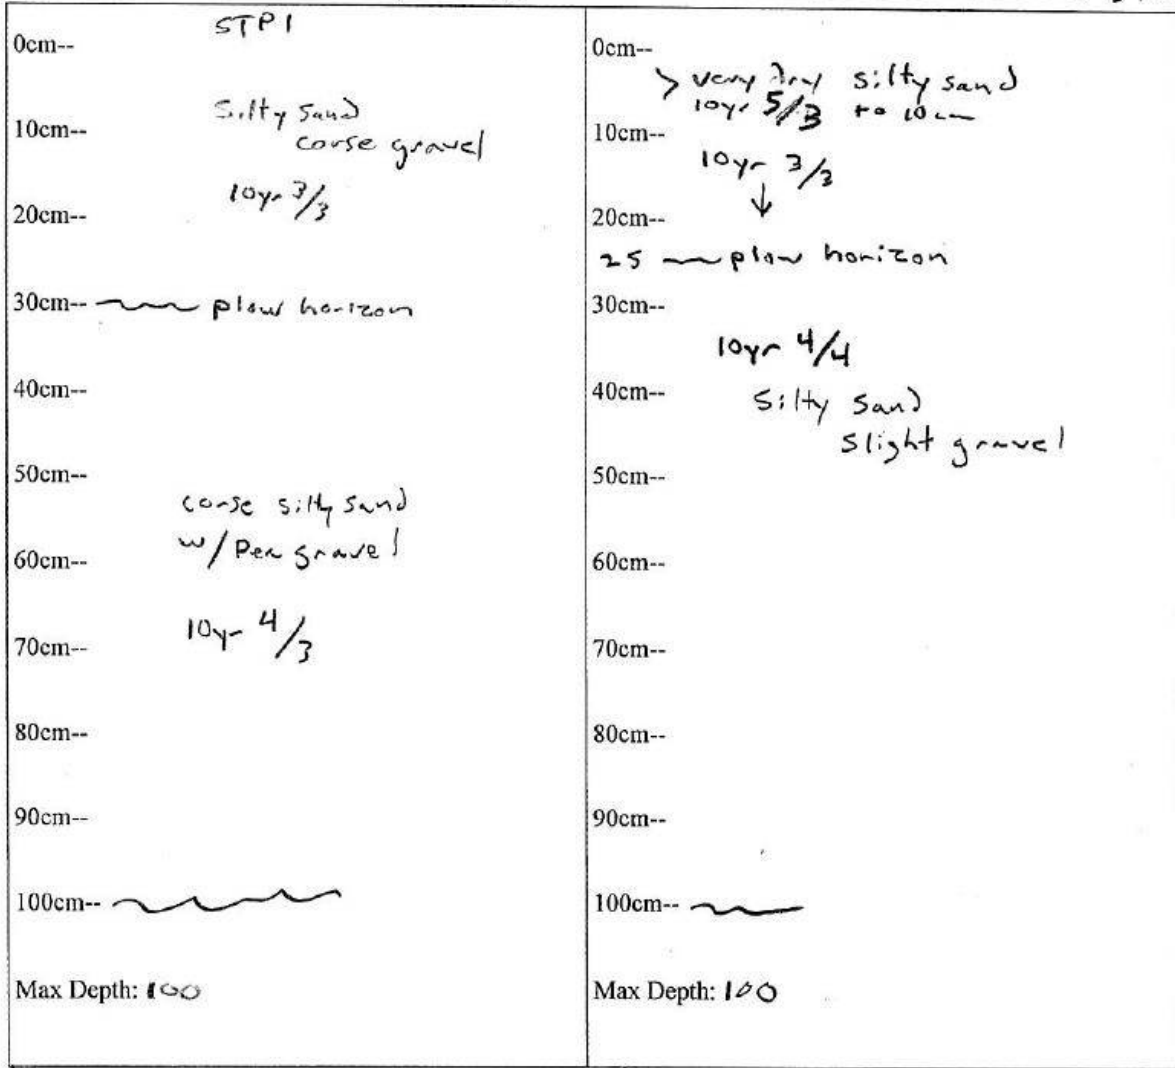 STP1
0cm--
Silty Sand
10cm--
corse gravel
10yr 3/3
20cm--
30cm-- plow horizon
40cm--
50cm--
corse silty sand
w/ Pea gravel
60cm--
10yr 4/3
70cm--
80cm--
90cm--
100cm--
Max Depth: 100
0cm--
> very dry silty sand
10yr 5/3 to 10cm
10cm--
10yr 3/3
↓
20cm--
25 plow horizon
30cm--
10yr 4/4
40cm--
Silty Sand
Slight gravel
50cm--
60cm--
70cm--
80cm--
90cm--
100cm--
Max Depth: 100